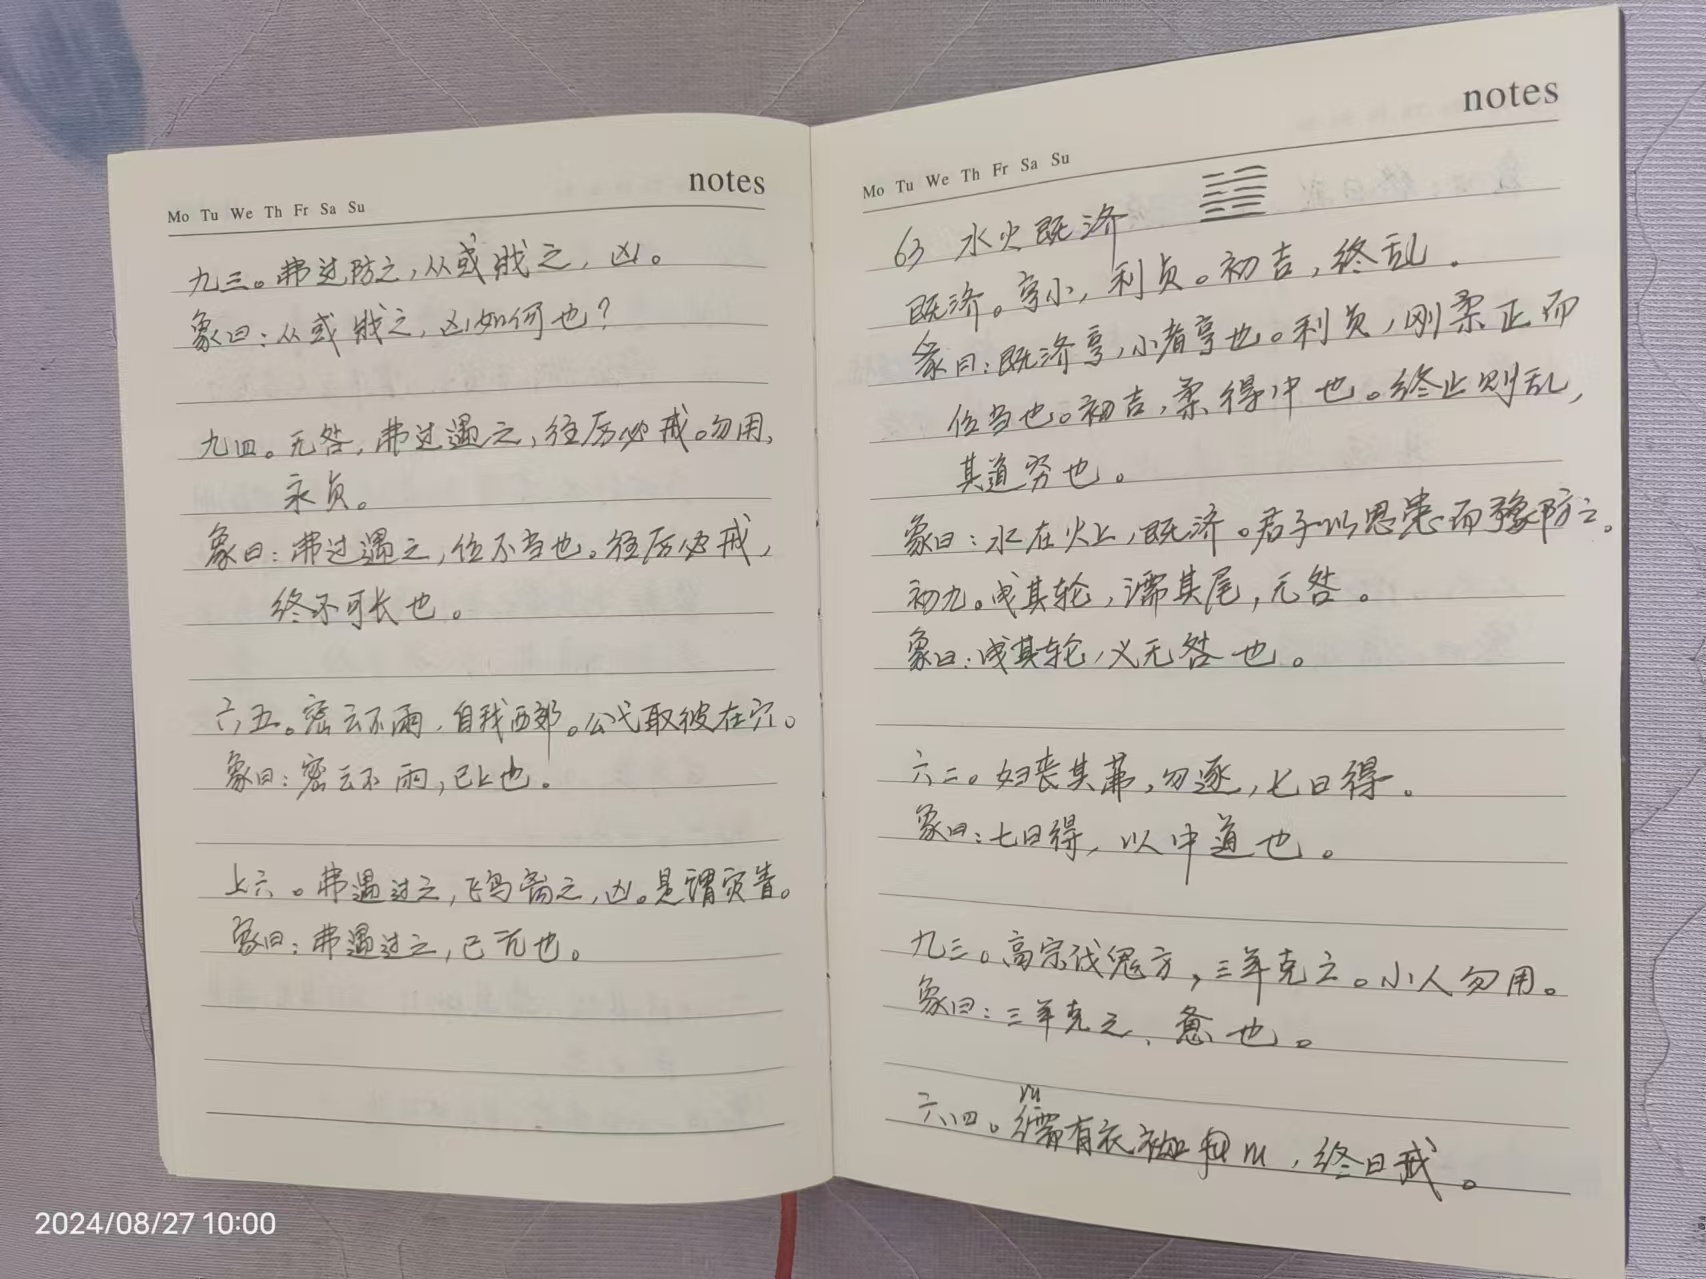 notes
Mo Tu We Th Fr Sa Su
九三。弗过防之,从或戕之,凶。
象曰:从或戕之,凶如何也?
九四。无咎,弗过遇之,往厉必戒。勿用,
永贞。
象曰:弗过遇之,位不当也。往厉必戒,
终不可长也。
六五。密云不雨,自我西郊。公弋取彼在穴。
象曰:密云不雨,已上也。
上六。弗遇过之,飞鸟离之,凶。是谓灾眚。
象曰:弗遇过之,已亢也。
notes
Mo Tu We Th Fr Sa Su
63 水火既济
既济。亨小,利贞。初吉,终乱.
彖曰:既济亨,小者亨也。利贞,刚柔正而
位当也。初吉,柔得中也。终止则乱,
其道穷也。
象曰:水在火上,既济。君子以思患而豫防之。
初九。曳其轮,濡其尾,无咎。
象曰:曳其轮,义无咎也。
六二。妇丧其茀,勿逐,七日得。
象曰:七日得,以中道也。
九三。高宗伐鬼方,三年克之。小人勿用。
象曰:三年克之、惫也。
ru
六四。繻有衣袽 ru,终日戒。
2024/08/27 10:00